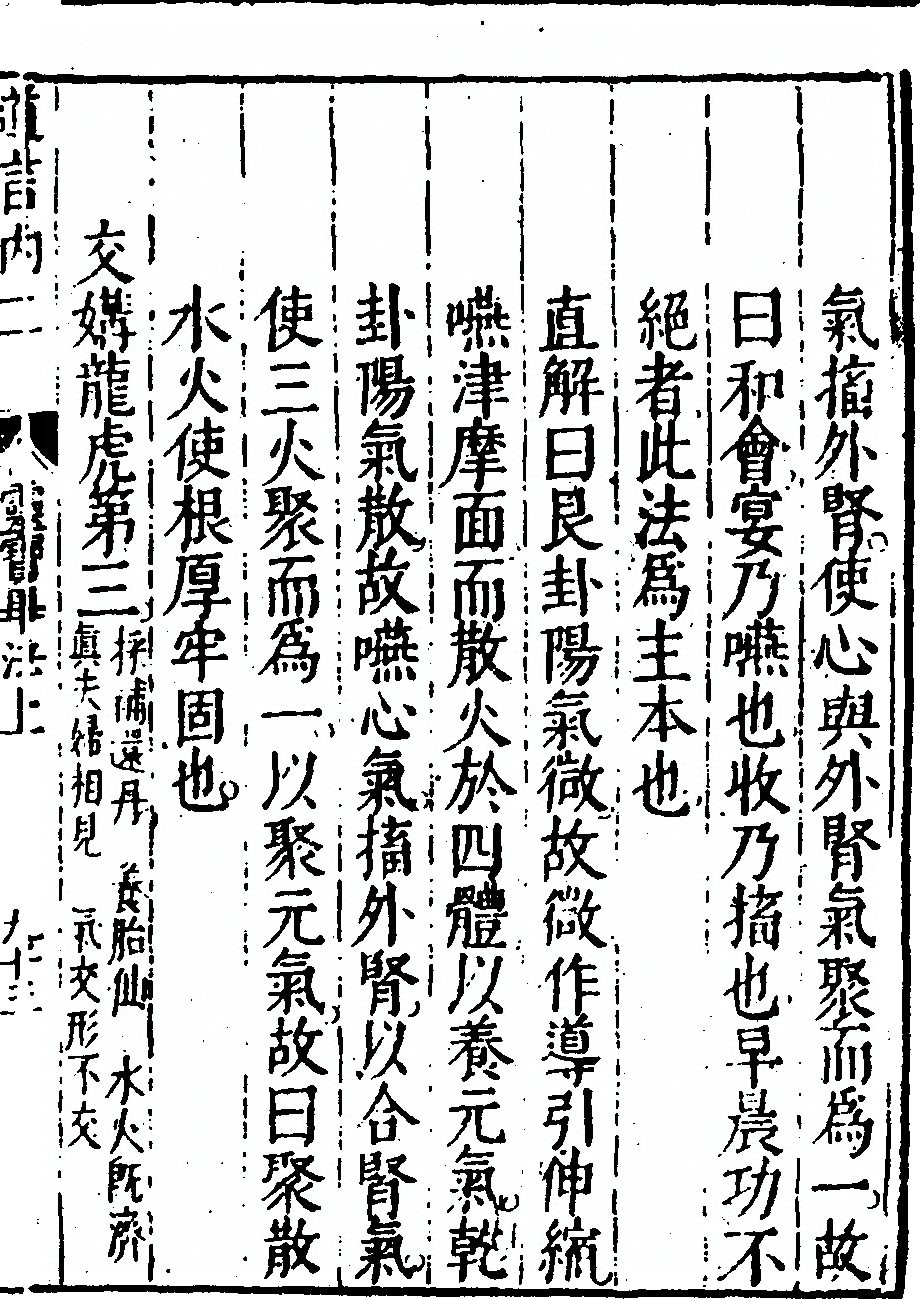 氣搐外腎使心與外腎氣聚而爲一故
曰和會宴乃嚥也收乃搐也早晨功不
絕者此法爲主本也
直解曰艮卦陽氣微故微作導引伸縮
嚥津摩面而散火於四體以養元氣乾
卦陽氣散故嚥心氣搐外腎以合腎氣
使三火聚而爲一以聚元氣故曰聚散
水火使根厚牢固也
交媾龍虎第三
採補還丹 養胎仙 水火既濟
眞夫婦相見 氣交形不交
道言内二 靈寶畢法上